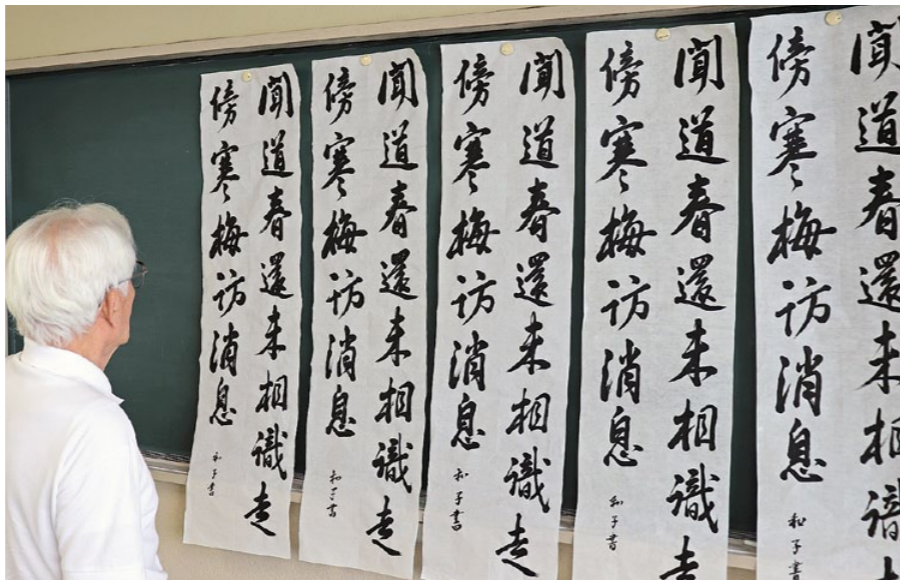 聞道春還未相識
傍寒梅訪消息
和子書
聞道春還未相識走
傍寒梅訪消息
和子書
聞道春還未相識走
傍寒梅訪消息
和子書
聞道春還未相識走
傍寒梅訪消息
和子書
聞道春還未相識走
傍寒梅訪消息
和子書